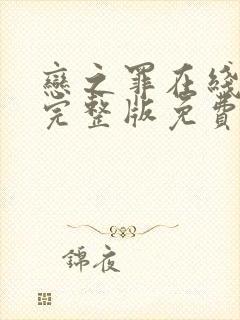 戀之罪在綫
完整版免費
錦夜